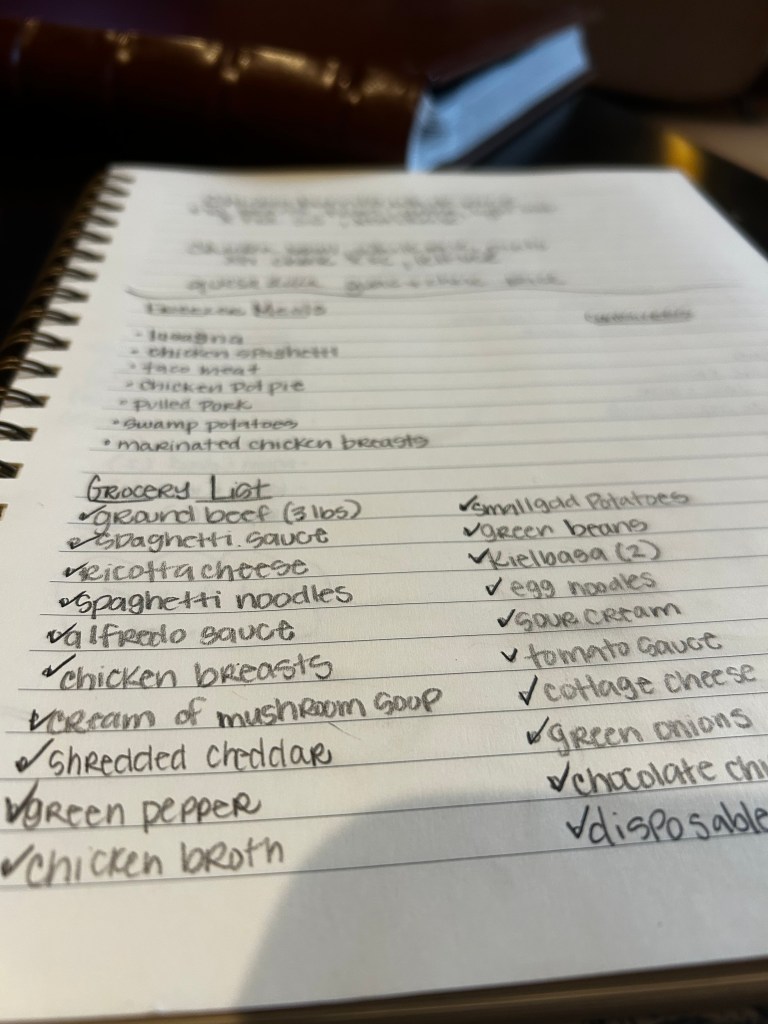 Freezer Meals
• lasagna
• chicken spaghetti
• taco meat
• chicken pot pie
• pulled pork
• swamp potatoes
• marinated chicken breasts
Grocery List
✓ground beef (3 lbs)
✓spaghetti sauce
✓ricotta cheese
✓spaghetti noodles
✓alfredo sauce
✓chicken breasts
✓cream of mushroom soup
✓shredded cheddar
✓green pepper
✓chicken broth
✓small gold potatoes
✓green beans
✓kielbasa (2)
✓egg noodles
✓sour cream
✓tomato sauce
✓cottage cheese
✓green onions
✓chocolate chi
✓disposable